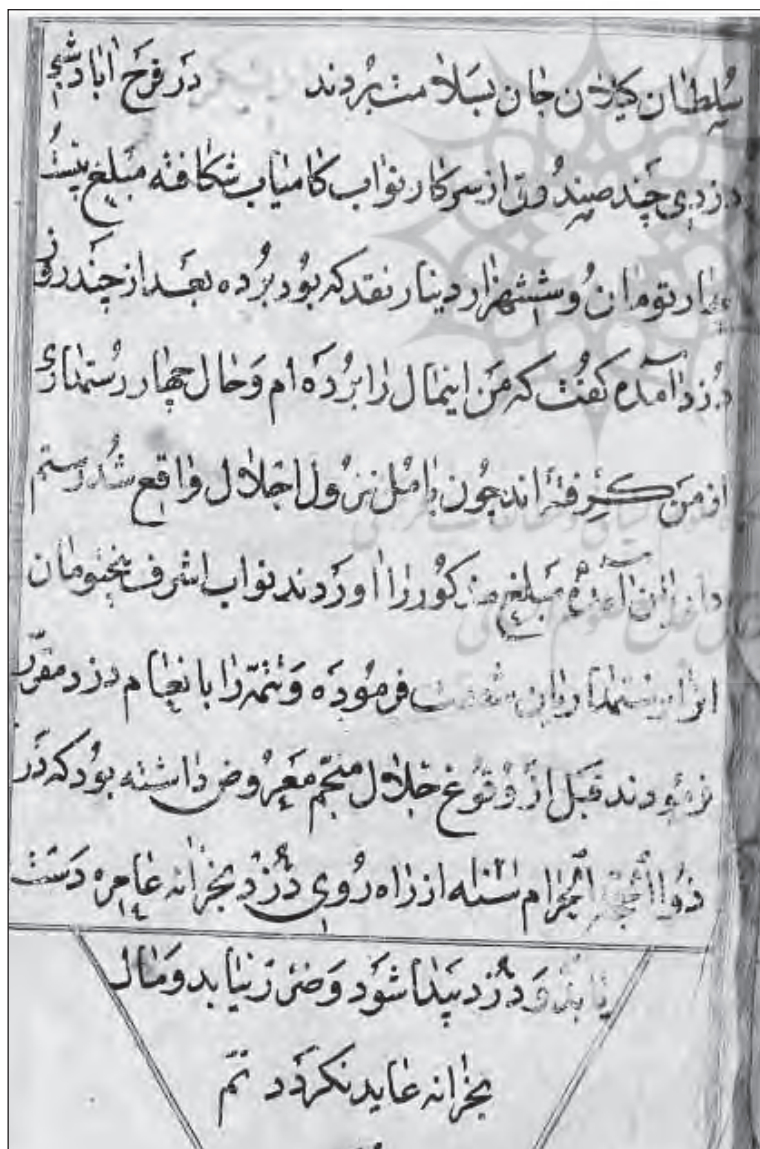 سلطان کیلان جان بسلامت بردند در فرح اباد شبی
دزدی چند صندوق از سرکار نواب کامیاب شکافته مبلغ بیست
هزار تومان و ششهزار دینار نقد که بود برده بعد از چند روز
دزد آمده کفت که من اینمال را برده ام و حال چهار رستمداری
از من کرفته اند چون بامل نزول اجلال واقع شد رستم
داران آمده مبلغ مذکور را اوردند نواب اشرف پنجتومان
از آن برستمداریان شفقت فرموده و تتمه را بانعام دزد مقرر
فرمودند قبل از وقوع جلال منجم معروض داشته بود که در
ذوالحجة الحرام سنه از راه روی دزد بخزانه عامره دست
یابد و دزد پیدا شود و ضرر نیابد و مال
بخزانه عاید نکردد تم